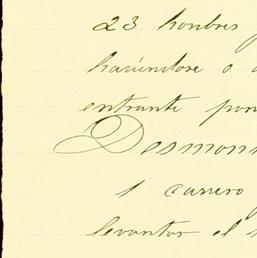 23 honbres
haciendose o
entrante por
Desmon
1 carrero
levantar el